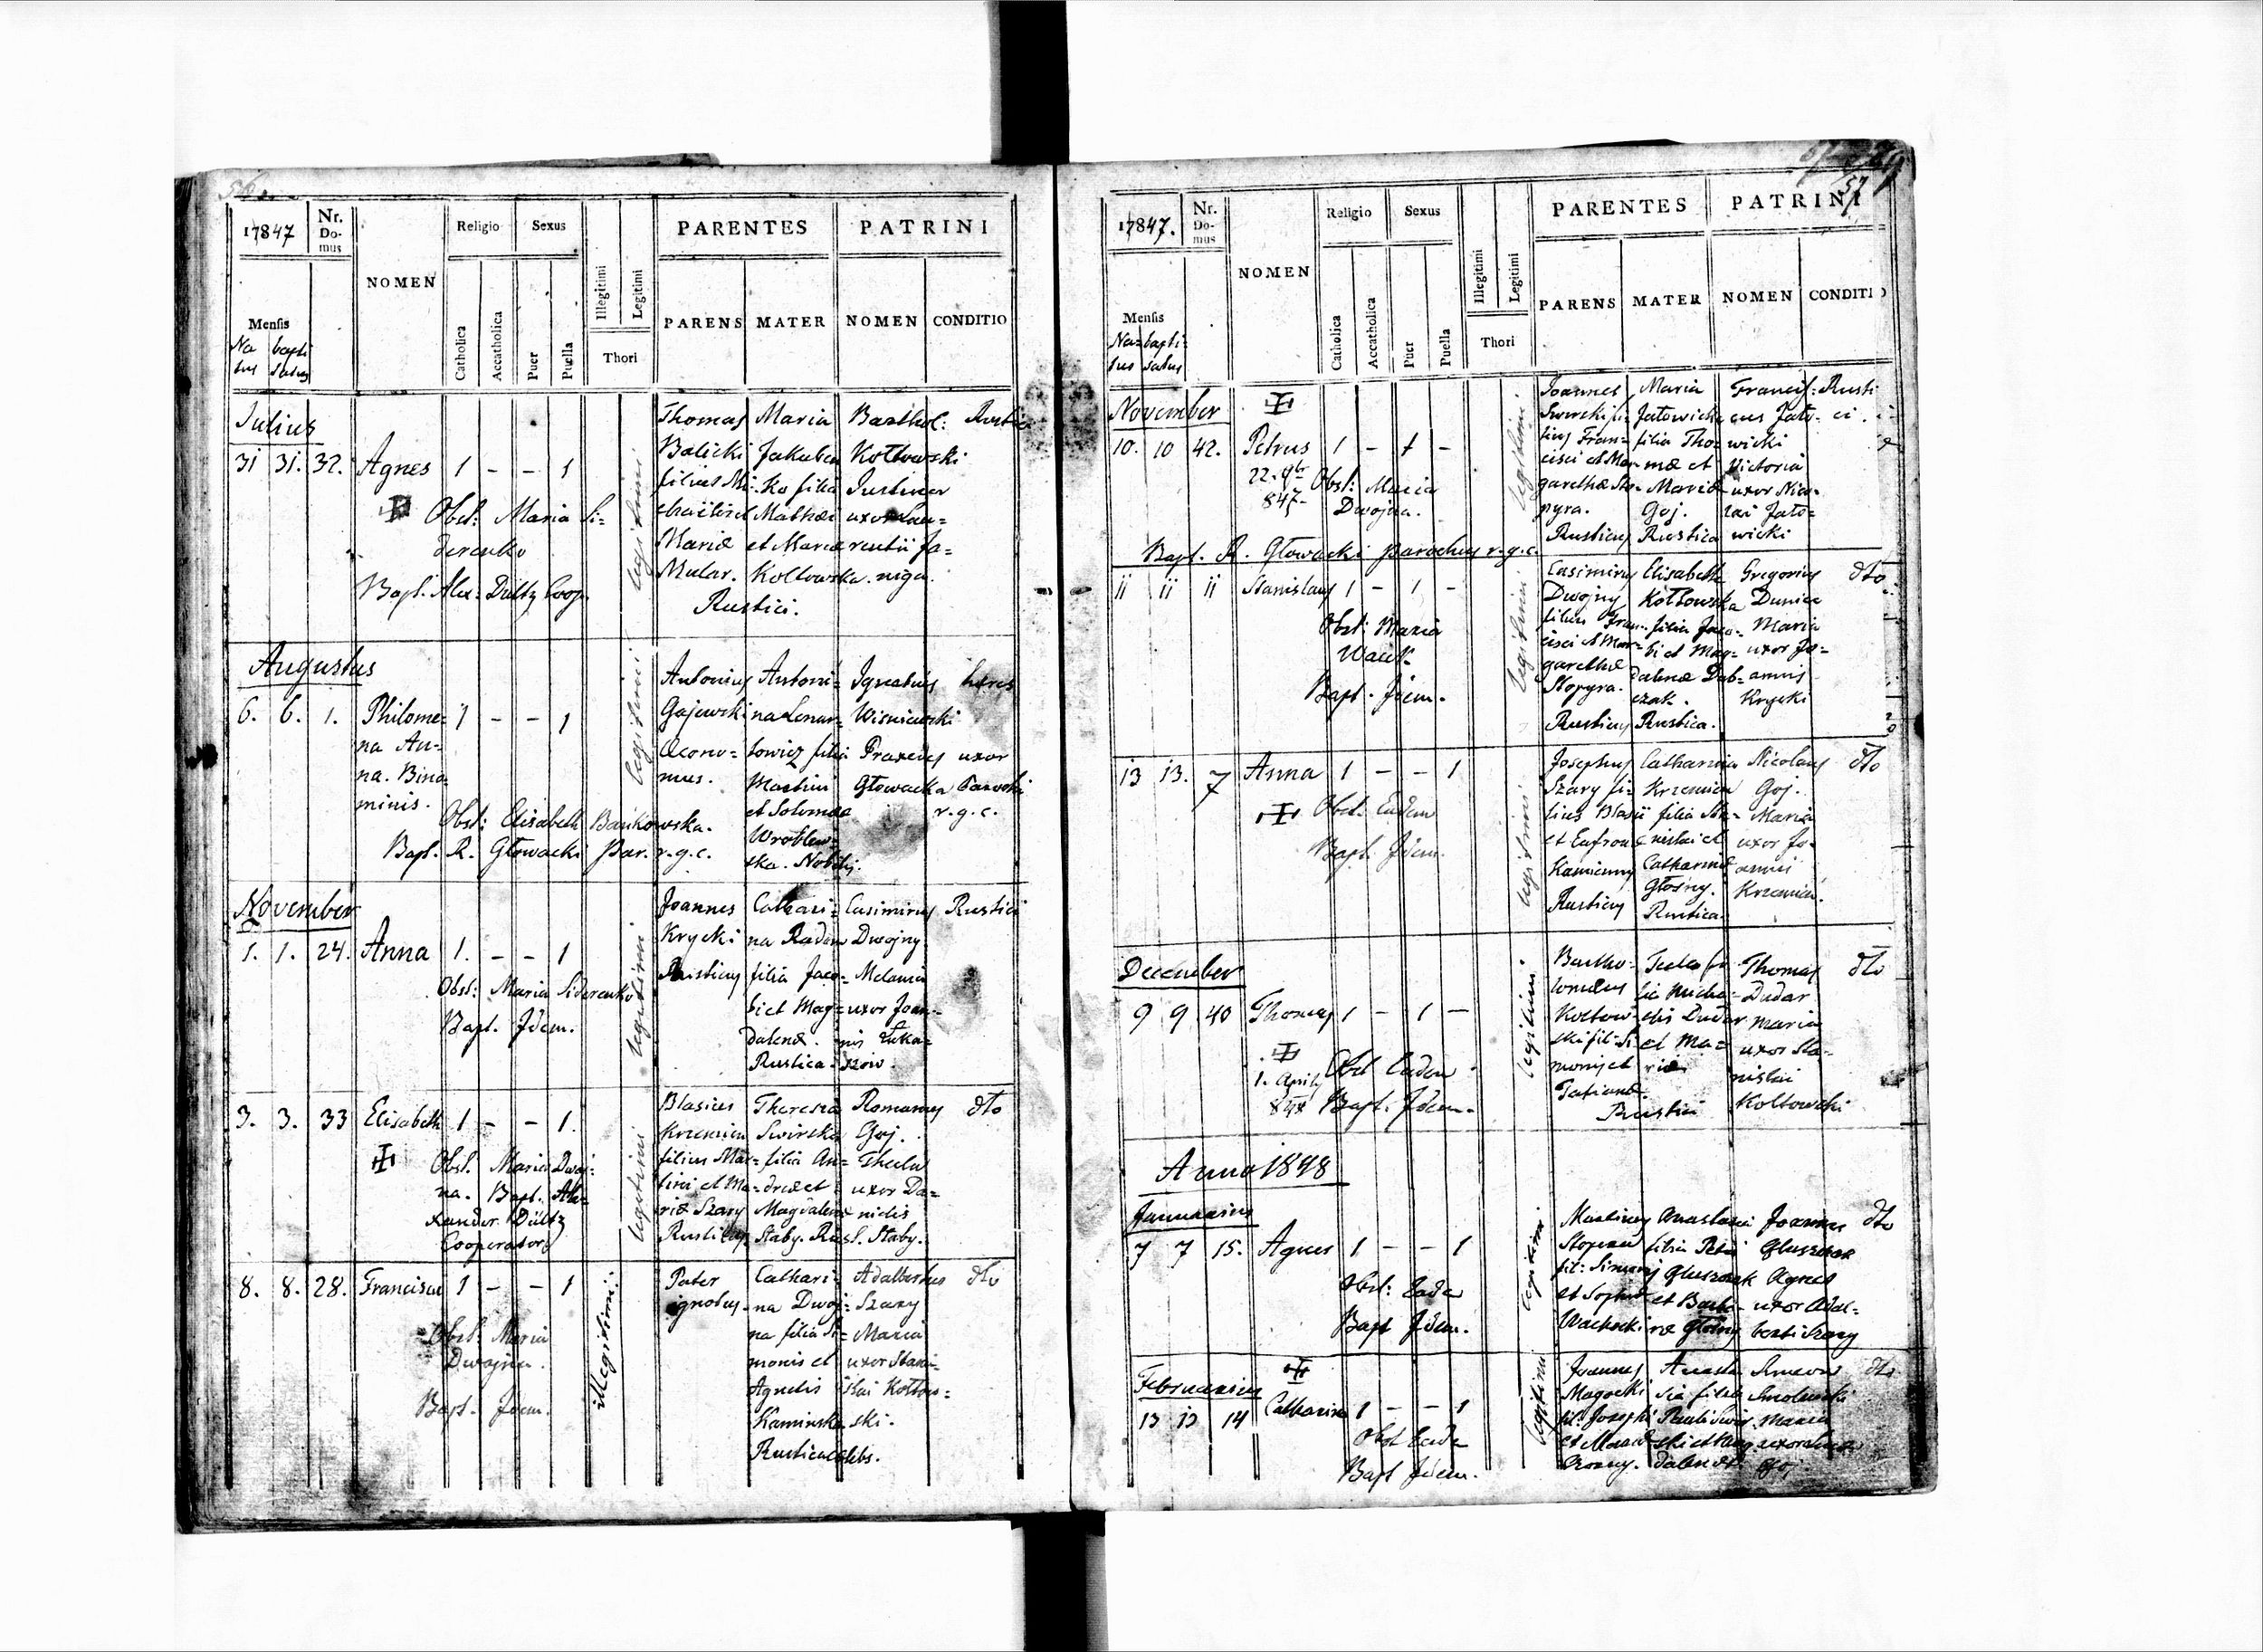 56.
17847
Nr. Domus
NOMEN
Religio
Sexus
Illegitimi
Legitimi
PARENTES
PATRINI
Mensis
Natus
baptisatus
Catholica
Accatholica
Puer
Puella
Thori
PARENS
MATER
NOMEN
CONDITIO
Julius
31 31. 32. Agnes 1 - - 1
Obst: Maria Si=
derenko
Bapt. Alex: Dültz Coop.
legitimi
Thomas
Balicki
filius Mi=
chaëlis et
Mariæ
Mular.
Maria
Jakuben
Ko filia
Mathæi
et Mariæ
Koltowska.
Rustici.
Barthol:
Kołtowski
Justina
uxor Lau=
rentii Ja=
niga.
Rustici
Augustus
6. 6. 1. Philome= 1 - - 1
na An=
na. Bino
minis.
Obst: Elisabeth Bańkowska.
Bapt. R. Głowacki Par. r.g.c.
legitimi
Antonius
Gajewski
Oecono=
mus.
Antoni=
na Lenar=
towicz filia
Martini
et Solomeæ
Wroblew=
ska. Nobilis.
Ignatius
Wisniewski
Praxeda
Głowacka
uxor
Parochi
r.g.c.
November
1. 1. 24. Anna 1. - - 1
Obst: Maria Siderenko
Bapt. Idem.
legitimi
Joannes
Krycki
Rusticus
Cathari=
na Radon
filia Jaco=
bi et Mag=
dalenæ.
Rustica.
Casimirus
Dwojny
Melania
uxor Joan=
nis Łuka=
szów.
Rustici
3. 3. 33 Elisabeth 1 - - 1.
Obst. Maria Dwoj=
na. Bapt. Ale=
xander Dültz
Cooperator
legitimi
Blasius
Krzemien
filius Mar=
tini et Ma=
riæ Szary
Rusticus
Theresia
Swirska
filia An=
dreæ et
Magdalenæ
Słaby. Rust.
Romanus
Goj.
Thecla
uxor Da=
nielis
Słaby.
dto
8. 8. 28. Francisca 1 - - 1
Obst: Maria
Dwojna.
Bapt. Idem.
illegitimi.
Pater
ignotus
Cathari=
na Dwoj=
na filia Si=
monis et
Agnetis
Kaminska
Rustica cælebs.
Adalbertus
Szary
Maria
uxor Stani=
slai Kołtow=
ski.
dto
57
17847.
Nr. Domus
NOMEN
Religio
Sexus
Illegitimi
Legitimi
PARENTES
PATRINI
Mensis
Natus
baptisatus
Catholica
Accatholica
Puer
Puella
Thori
PARENS
MATER
NOMEN
CONDITIO
November
10. 10 42. Petrus 1 - 1 -
22. 9br
847
Obst: Maria
Dwojna.
Bapt. R. Głowacki Parochus r.g.c.
legitimi.
Joannes
Swirski fi=
lius Fran=
cisci et Mar=
garethæ Sto=
pyra.
Rusticus
Maria
Jatowicka
filia Tho=
mæ et
Mariæ
Goj.
Rustica
Francis=
cus Jato=
wicki
Victoria
uxor Nico=
lai Jato=
wicki
Rusti
ci.
11 11 11 Stanislaus 1 - 1 -
Obst: Maria
Bapt. Idem.
legitimi
Casimirus
Dwojny
filius Fran=
cisci et Mar=
garethæ
Stopyra.
Rusticus
Elisabetha
Kołtowska
filia Jaco=
bi et Mag=
dalenæ Dub=
czak.
Rustica.
Gregorius
Duniec
Maria
uxor Jo=
annis
Krycki
dto
13 13. 7 Anna 1 - - 1
Obst. Eadem
Bapt. Idem.
legitimi
Josephus
Szary fi=
lius Blasii
et Eufros
Kamienny
Rusticus
Catharina
Krzemien
filia Sta=
nislai et
Catharinæ
Głośny.
Rustica.
Nicolaus
Goj.
Maria
uxor Jo=
annis
Krzemien.
dto
December
9 9 40 Thomas 1 - 1 -
1. Aprilis
848
Obst Eadem
Bapt. Idem.
legitimi.
Bartho=
lomæus
Kołtow=
ski fil: Si=
monis et
Tatianæ.
Rustici
Tecla fi=
lia Micha=
elis Dudar
et Ma=
riæ
Thomas
Dudar
Maria
uxor Sta=
nislai
Koltowski
dto
Anno 1848
Januarius
7 7 15. Agnes 1 - - 1
Obst: Eadem
Bapt Idem.
legitimi.
Martinus
fil: Simonis
et Sophiæ
Anastasia
filia Petri
Gluszak
et Barba=
ræ Głośny
Joannes
Gluszak
Agnes
uxor Adal=
berti Szary
dto
Februarius
13 13 14 Catharina 1 - - 1
Obst Eadem
Bapt Idem.
legitimi
Joannes
Magocki
fil: Josephi
et Mariæ
Anasta
sia filia
Pauli Swir=
ski et Mag=
dalenæ
Simeon
Maria
uxor
Goj
dto